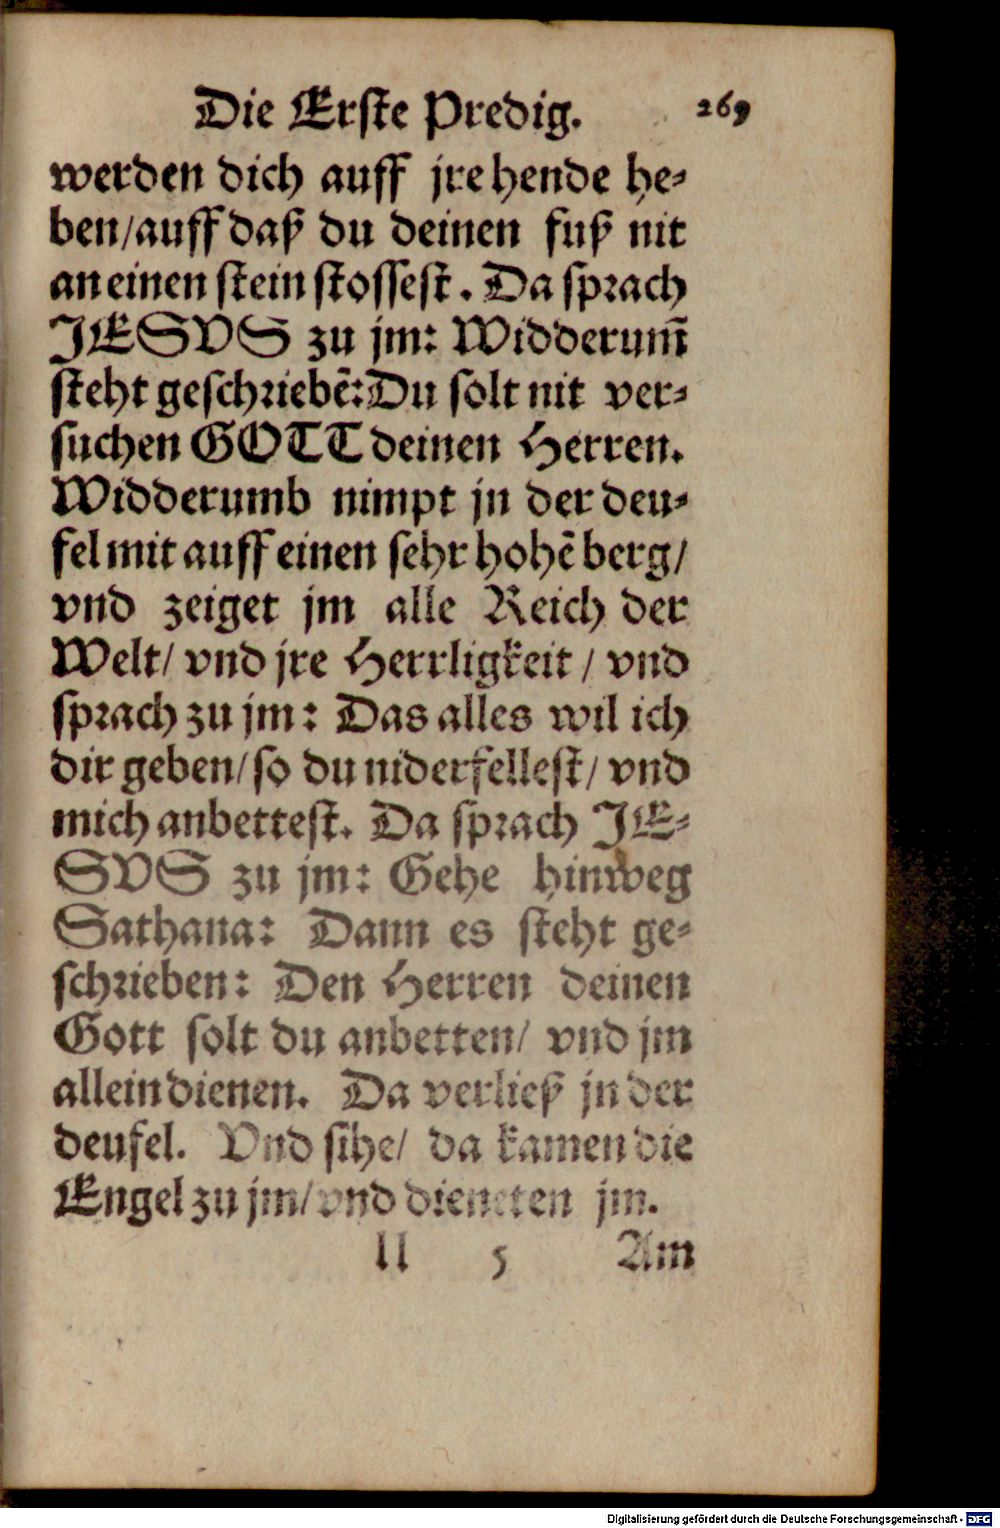 Die Erste Predig. 269
werden dich auff jre hende he-
ben/auff daß du deinen fuß nit
an einen stein stossest. Da sprach
JESVS zu jm: Widderum̃
steht geschriebẽ: Du solt nit ver-
suchen GOTT deinen Herren.
Widderumb nimpt jn der deu-
fel mit auff einen sehr hohẽ berg/
vnd zeiget jm alle Reich der
Welt/ vnd jre Herrligkeit / vnd
sprach zu jm: Das alles wil ich
dir geben/ so du niderfellest/ vnd
mich anbettest. Da sprach JE-
SVS zu jm: Gehe hinweg
Sathana: Dann es steht ge-
schrieben: Den Herren deinen
Gott solt du anbetten/ vnd jm
allein dienen. Da verließ jn der
deufel. Vnd sihe/ da kamen die
Engel zu jm/ vnd dieneten jm.
ll 5 Am
Digitalisierung gefördert durch die Deutsche Forschungsgemeinschaft - DFG